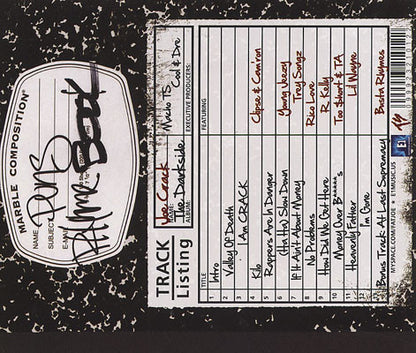 MARBLE COMPOSITION®
NAME
SUBJECT
PUNS
RHYME BOOK
TRACK
Listing
NAME: Joe Crack
ALBUM: The Darkside
Mucho TS
Cool & Dre
EXECUTIVE PRODUCERS:
TITLE FEATURING
1 Intro
2 Valley Of Death
3 I Am CRACK
4 Kilo Clipse & Cam'ron
5 Rappers Are In Danger
6 (Ha Ha) Slow Down Young Jeezy
7 If It Ain't About Money Trey Songz
8 No Problems Rico Love
9 How Did We Get Here R Kelly
10 Money Over B*****s Too $hort & TA
11 Heavenly Father Lil Wayne
12 I'm Gone
13 Bonus Track: At Last Supremacy Busta Rhymes
MYSPACE.COM/FATJOE • E1MUSIC.US